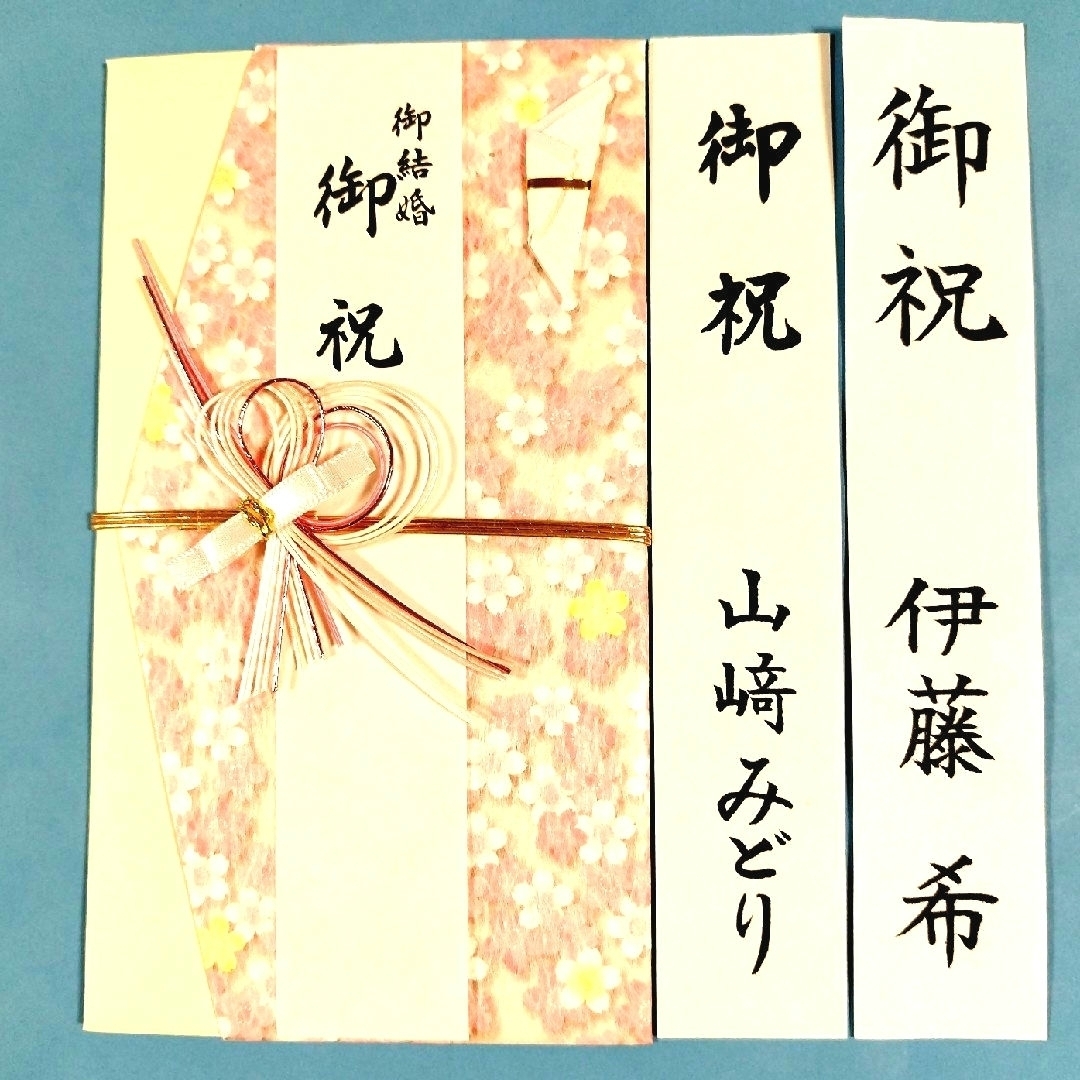 御祝
伊藤 希
御祝
山﨑みどり
御結婚
御祝